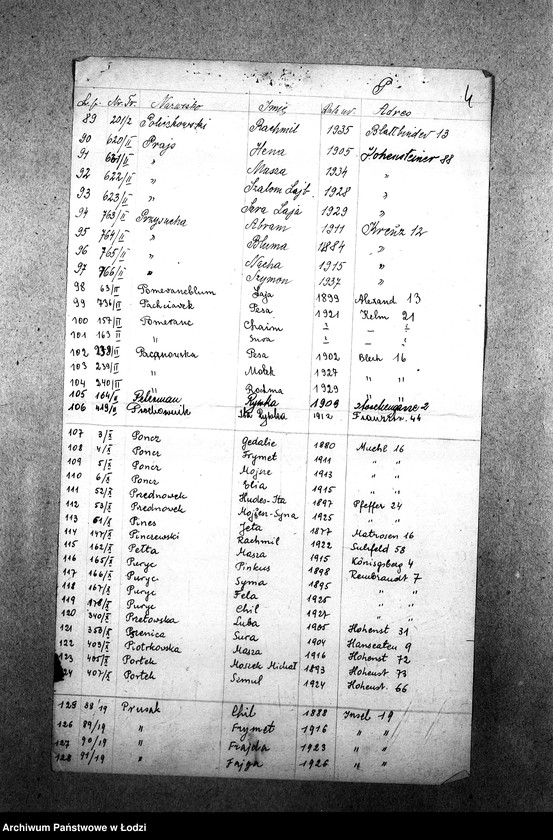 P
4
L.p. Nr. Tr. Nazwisko Imię Data ur. Adres
89 20/2 Poliszkowski Rachmil 1935 Blattbinder 13
90 620/II Prajs Hena 1905 Hohensteiner 88
91 621/II " Masza 1934 "
92 622/II " Szalom Lajb 1928 "
93 623/II " Sara Łaja 1929 "
94 763/II Przysucha Abram 1911 Kreuz 12
95 764/II " Bluma 1884 "
96 765/II " Nacha 1915 "
97 766/II " Szymon 1937 "
98 63/II Pomerancblum Łaja 1899 Alexand 13
99 736/II Pachciarek Pesa 1921 Kelm 21
100 157/II Pomeranc Chaim
101 163/II " Sura
102 238/II Pacanowska Pesa 1902 Blech 16
103 239/II " Majek 1927 " "
104 240/II " Rodma 1929 " "
105 164/II Pelerman Rywka 1909
106 419/II Prochownik Rywka 1912 Franzstr. 44
107 3/X Poncz Gedalie 1880 Muehl 16
108 4/X Poncz Frymet 1911 " "
109 5/X Poncz Mojsze 1913 " "
110 6/X Poncz Elia 1915 " "
111 52/X Przednowek Hudes-Ita 1897 Pfeffer 24
112 53/X Przednowek Mojżesz-Syna 1925 " "
113 61/X Pines Jeta 1877 Matrosen 16
114 147/X Pinczewski Rachmil 1922 Sulzfeld 58
115 162/X Petta Masza 1915 Königsberg 4
116 165/X Puryc Pinkus 1898 Rembrandt 7
117 166/X Puryc Syma 1895 " "
118 167/X Puryc Fela 1925 " "
119 178/X Puryc Chil 1927 " "
120 340/X Przetowska Luba 1905 Hohenst 31
121 353/X Pszenica Sura 1904 Hanseaten 9
122 403/X Piotrkowska Masza 1916 Hohenst 72
123 405/X Portek Moszek Michał 1893 Hohenst 73
124 407/X Portek Szmul 1924 Hohenst. 66
125 88/19 Prusak Chil 1888 Insel 19
126 89/19 " Frymet 1916 " "
127 90/19 " Frajda 1923 " "
128 91/19 " Fajga 1926 " "
Archiwum Państwowe w Łodzi